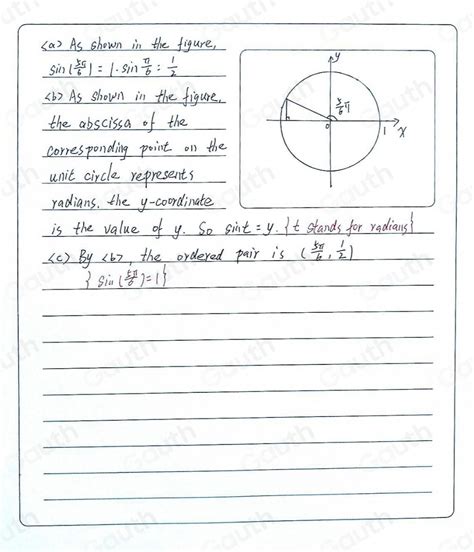 <a> As shown in the figure,
sin(5π/6) = 1·sin π/6 = 1/2
<b> As shown in the figure,
the abscissa of the
corresponding point on the
unit circle represents
radians, the y-coordinate
is the value of y. So sint = y. {t stands for radians}
<c> By <b>, the ordered pair is (5π/6, 1/2)
{sin(5π/6)=1}
y
5/6 π
0
1
x
Gauth